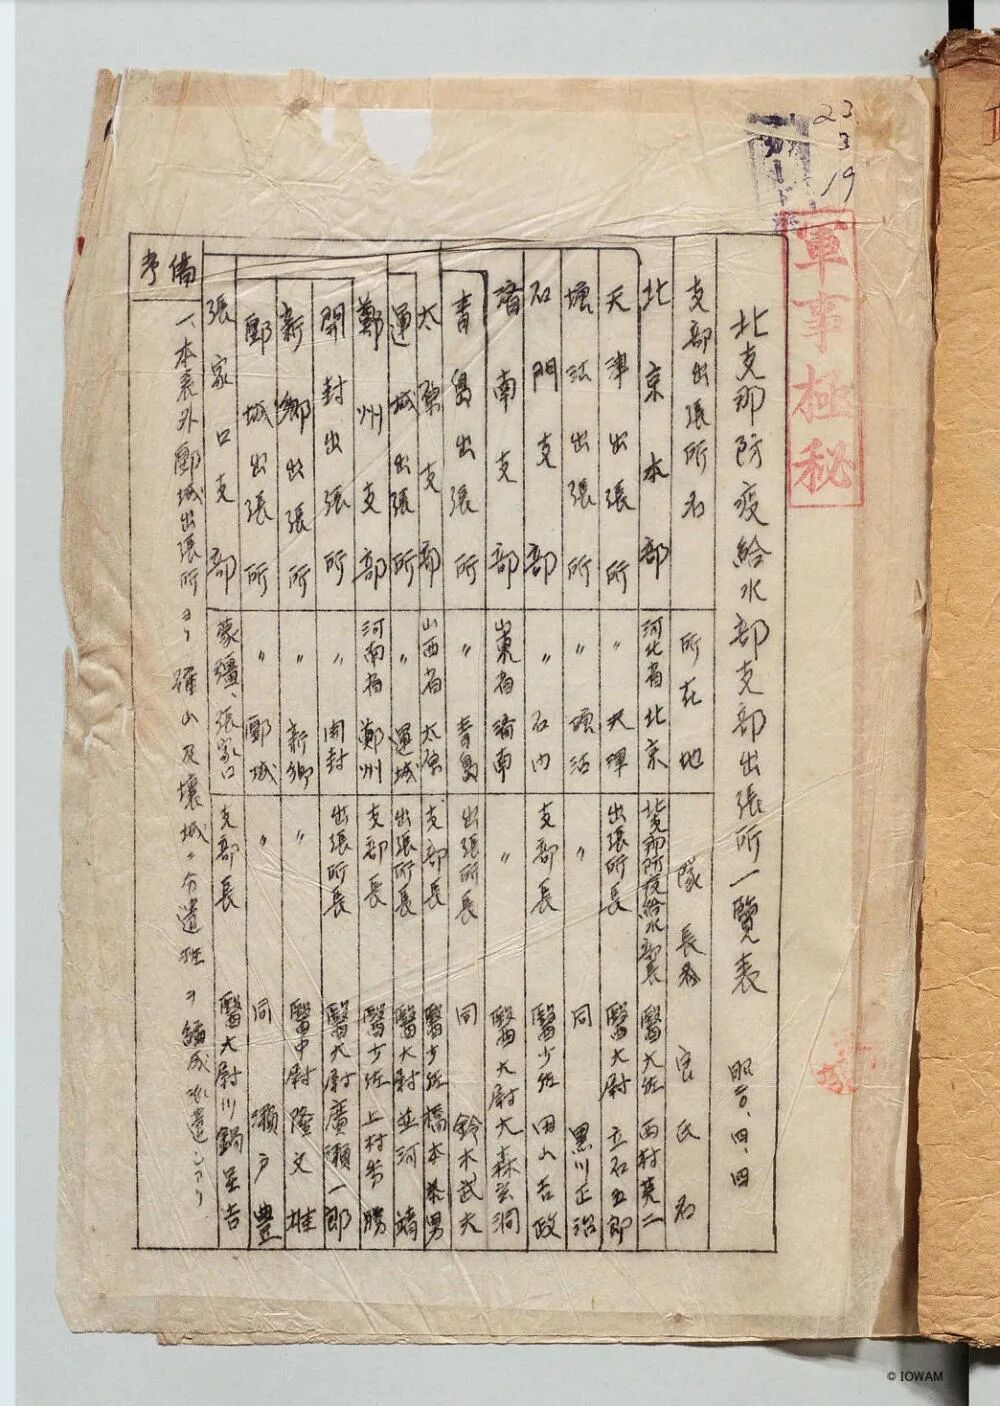 23
3
19
軍事極秘
北支那防疫給水部支部出張所一覽表 昭二〇、四、四
支部出張所名 所在地 隊長名 官氏名
北京本部 河北省北京 北支那防疫給水部長 醫大佐 西村英二
天津出張所 〃 天津 出張所長 醫大尉 立石五郎
塘沽出張所 〃 塘沽 〃 同 黒川正治
石門支部 〃 石門 支部長 醫少佐 田山吉政
濟南支部 山東省濟南 〃 醫大尉 大森玄洞
青島出張所 〃 青島 出張所長 同 鈴木武夫
太原支部 山西省太原 支部長 醫少佐 橋本 男
運城出張所 〃 運城 出張所長 醫大尉 並河靖
鄭州支部 河南省鄭州 支部長 醫少佐 上村秀勝
開封出張所 〃 開封 出張所長 醫大尉 廣瀬一郎
新鄉出張所 〃 新鄉 〃 醫中尉 隆文雄
郾城出張所 〃 郾城 〃 同 瀬戸豊
張家口支部 蒙疆、張家口 支部長 醫大尉 川鍋里吉
備考
一、本表外郾城出張所ヨリ確山及襄城ニ分遣班ヲ編成派遣シアリ
© IOWAM